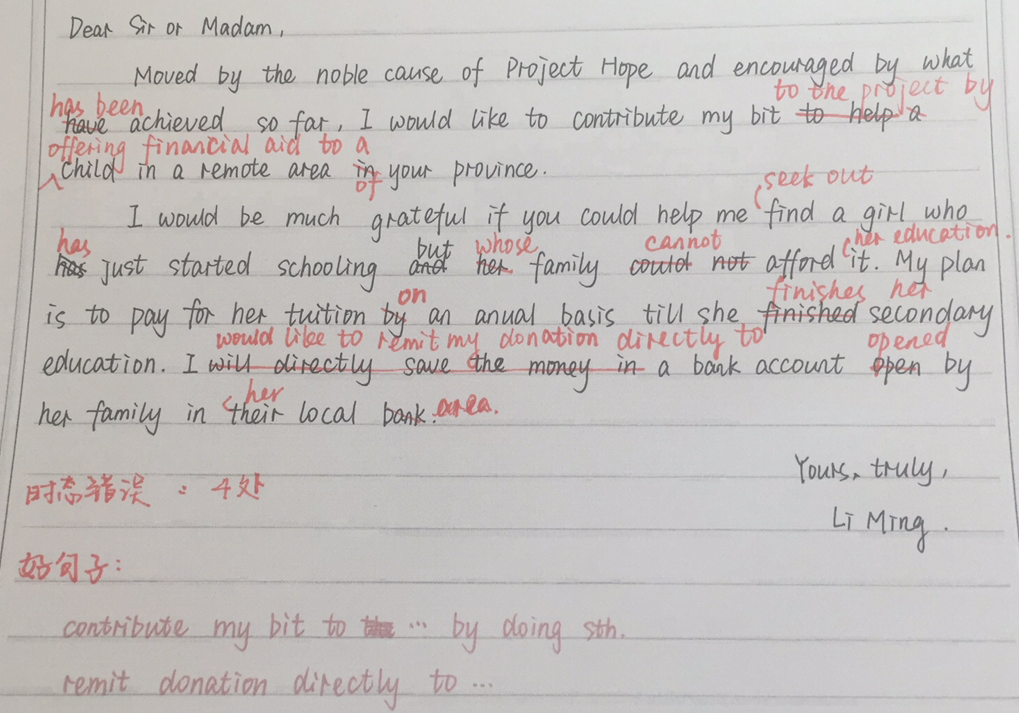 Dear Sir or Madam,
Moved by the noble cause of Project Hope and encouraged by what
has been to the project by
have achieved so far, I would like to contribute my bit to help a
offering financial aid to a
child in a remote area in your province.
of seek out
I would be much grateful if you could help me find a girl who
has but whose cannot her education.
has just started schooling and her family could not afford it. My plan
on finishes her
is to pay for her tuition by an anual basis till she finished secondary
would like to remit my donation directly to opened
education. I will directly save the money in a bank account open by
her
her family in their local bank. area.
Yours, truly,
时态错误：4处
Li Ming.
好句子：
contribute my bit to ... by doing sth.
remit donation directly to ...